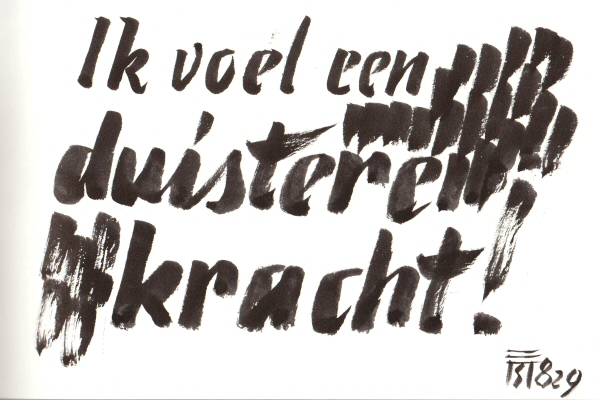 Ik voel een
duisteren
kracht!
829